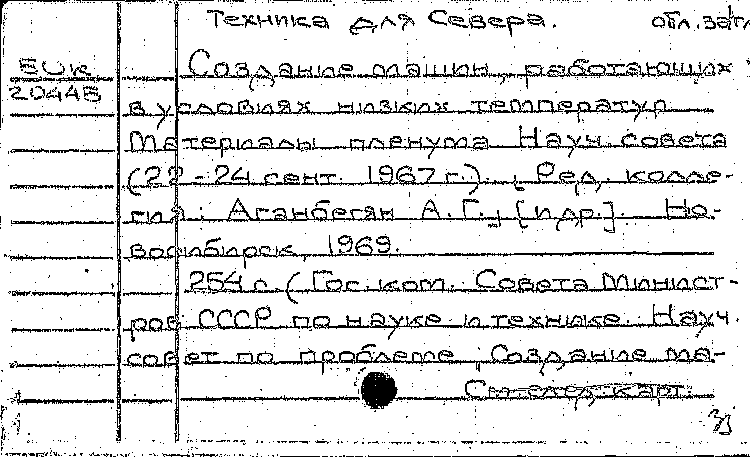 Техника для Севера.
обл. загл
БUк
20445
Создание машин, работающих
в условиях низких температур
Материалы пленума Науч. совета
(22-24 сент. 1967 г.). [Ред. колле-
гия: Аганбегян А. Г., [и др.]. Но-
восибирск, 1969.
254 с. (Гос. ком. Совета Минист-
ров СССР по науке и технике. Науч.
совет по проблеме „Создание ма-
См. след. карт.